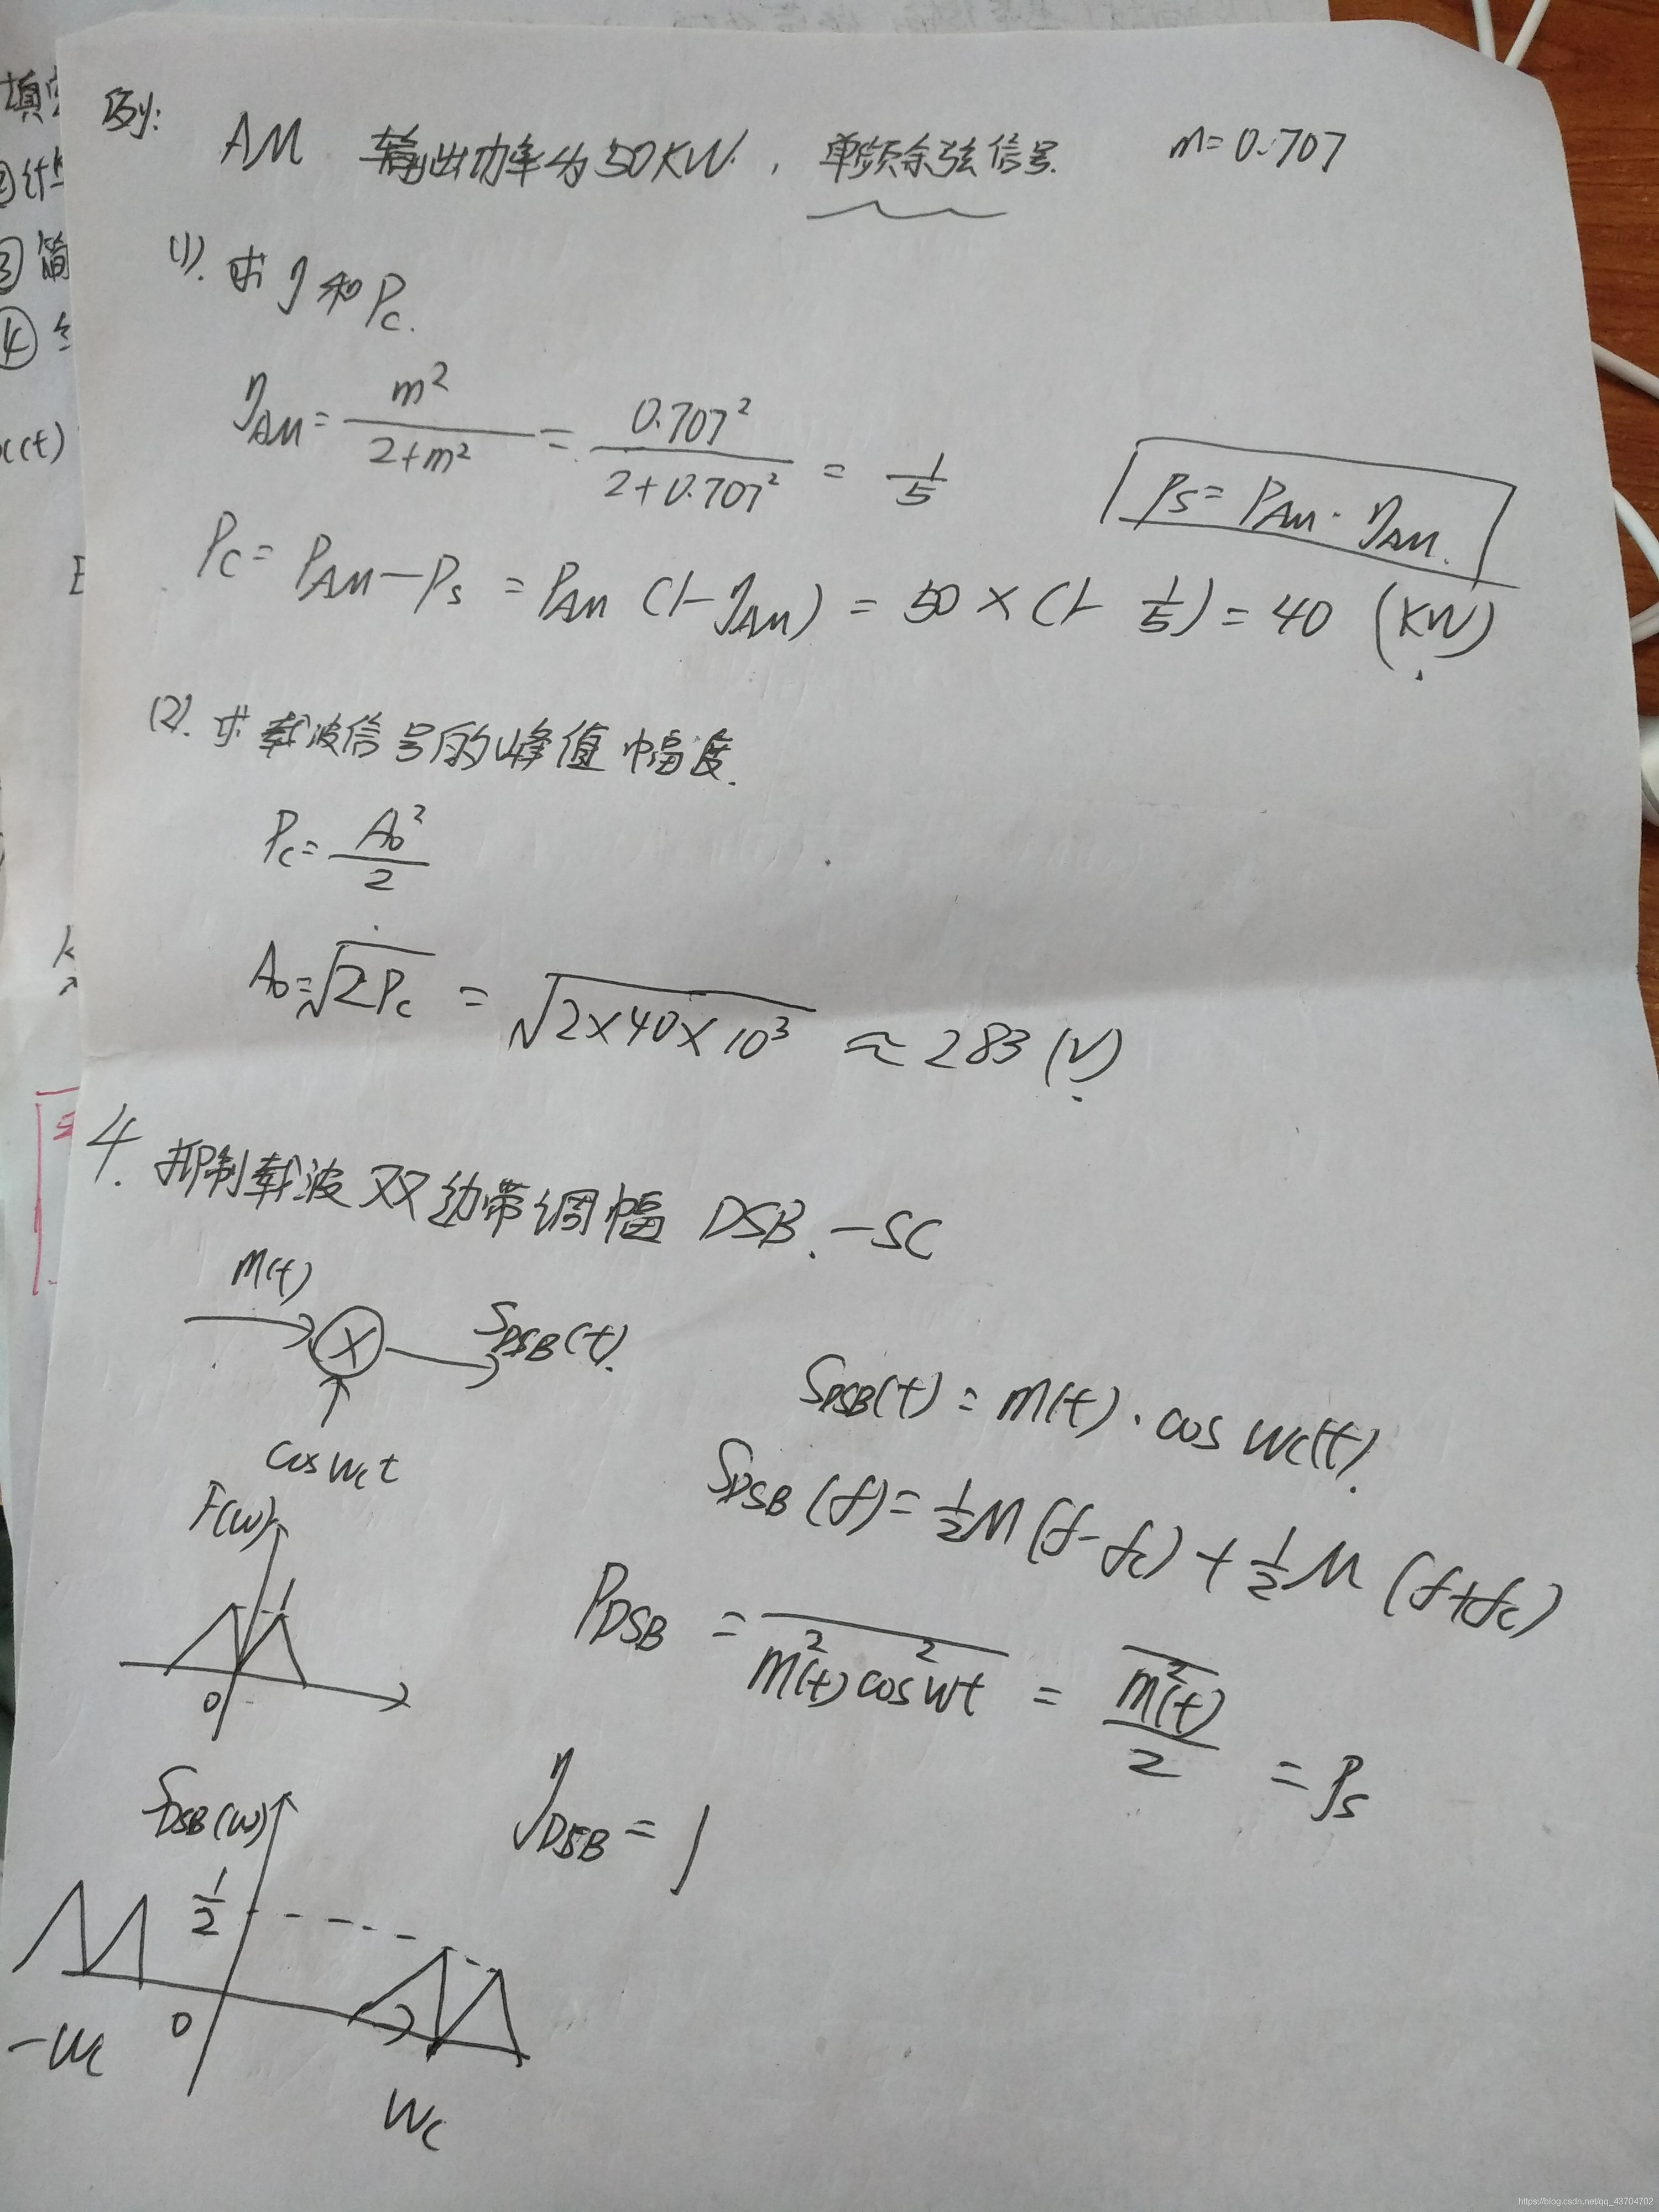 例:
AM 输出功率为50KW, 单频余弦信号. m=0.707
(1). 求η和Pc.
ηAM = m²/(2+m²) = 0.707²/(2+0.707²) = 1/5
Ps = PAM · ηAM.
Pc = PAM - Ps = PAM (1-ηAM) = 50×(1-1/5) = 40 (KW)
(2). 求载波信号的峰值幅度.
Pc = A₀²/2
A₀ = √(2Pc) = √(2×40×10³) ≈ 283 (V)
4. 抑制载波双边带调幅 DSB.-SC
m(t)
X
SDSB(t).
cos wct
SDSB(t) = m(t) · cos wc(t).
SDSB(f) = ½M(f-fc) + ½M(f+fc)
F(w)
1
0
PDSB = \overline{m²(t)cos²wt} = \overline{m²(t)}/2 = Ps
ηDSB = 1
SDSB(w)
1/2
0
-wc
wc
填
②计
③简
④
x(t)
E
k
https://blog.csdn.net/qq_43704702